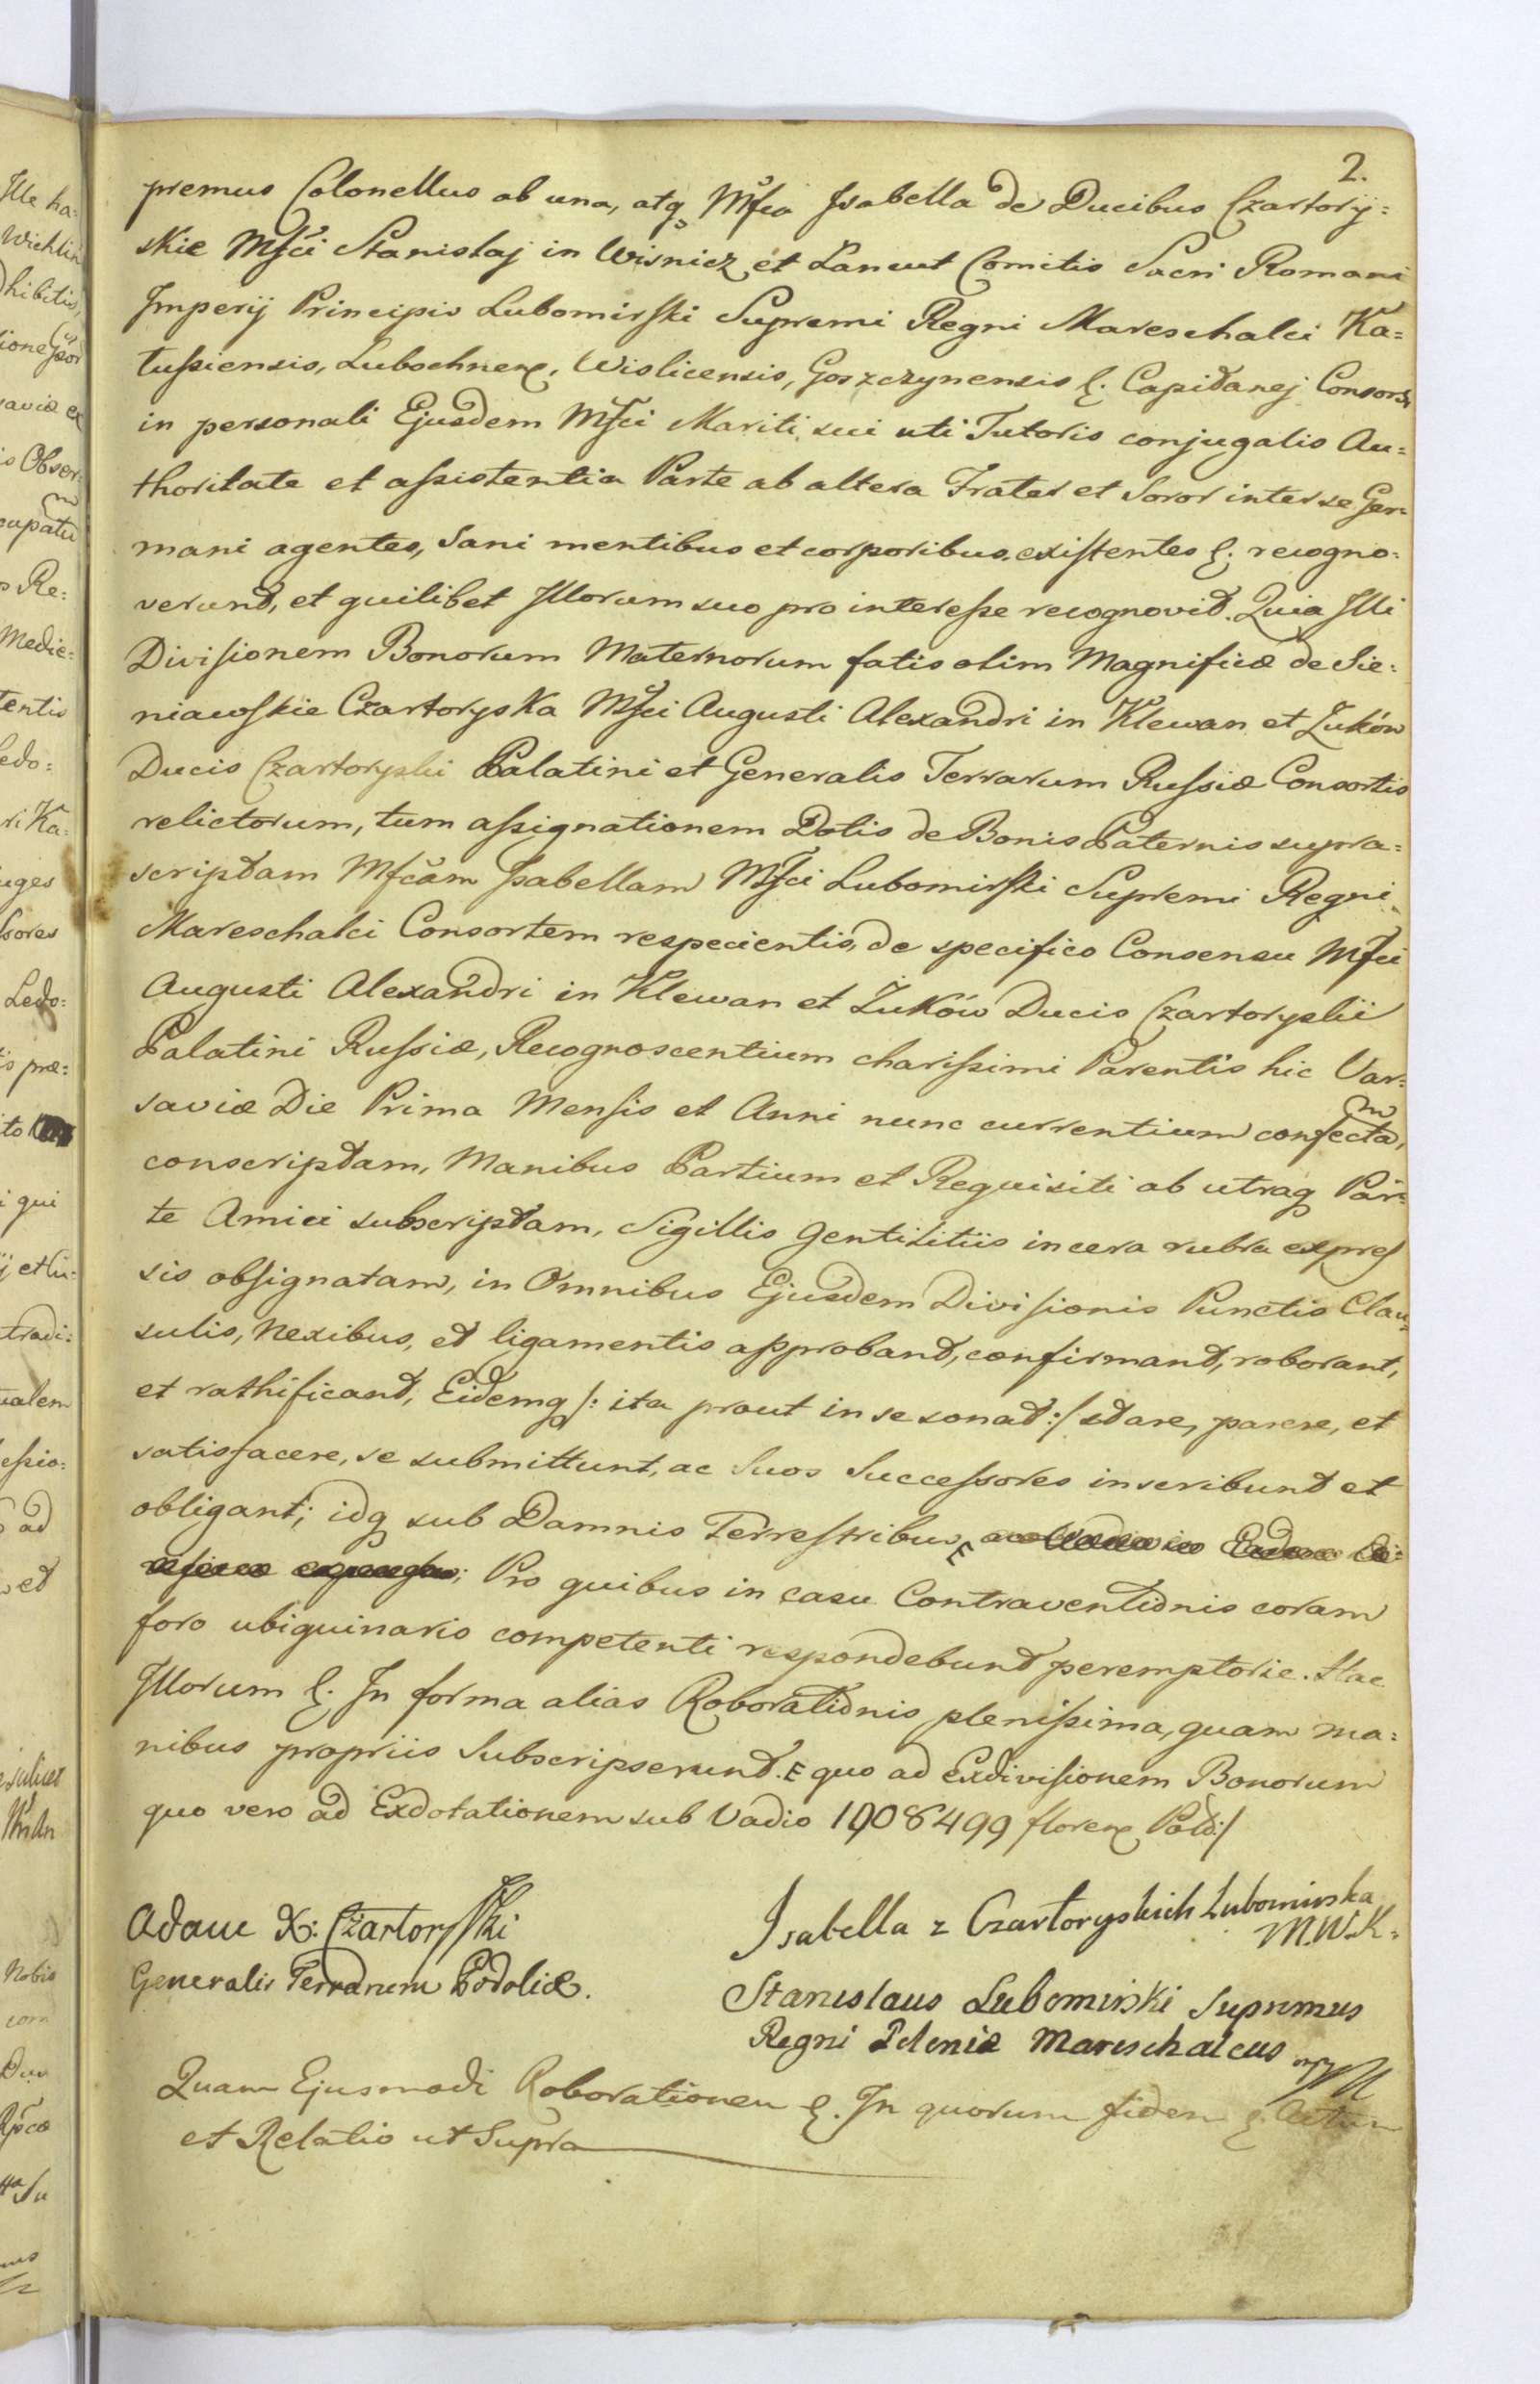 2.
premus Colonellus ab una, atq Mfca Isabella de Ducibus Czartory=
skie Mfci Stanislaj in Wisnicz et Lancut Comitis Sacri Romani
Imperij Principis Lubomirski Supremi Regni Mareschalci Ka=
tussiensis, Lubochnen, Wislicensis, Goszczynensis &. Capitanej Consors
in personali Ejusdem Mfci Mariti sui uti Tutoris conjugalis Au=
thoritate et assistentia Parte ab altera Frater et Soror inter se Ger=
mani agentes, Sani mentibus et corporibus existentes &. recogno=
verunt, et quilibet Illorum suo pro interesse recognovit. Quia Illi
Divisionem Bonorum Maternorum fatis olim Magnificæ de Sie=
niawskie Czartoryska Mfci Augusti Alexandri in Klewan et Żuków
Ducis Czartoryski Palatini et Generalis Terrarum Russiæ Consortis
relictorum, tum assignationem Dotis de Bonis Paternis supra=
scriptam Mfcam Isabellam Mfci Lubomirski Supremi Regni
Mareschalci Consortem respicientis, de specifico Consensu Mfci
Augusti Alexandri in Klewan et Żuków Ducis Czartoryskii
Palatini Russiæ, Recognoscentium charissimi Parentis hic Var=
saviæ Die Prima Mensis et Anni nunc currentium confectam,
conscriptam, Manibus Partium et Requisiti ab utraq Par=
te Amici subscriptam, Sigillis Gentilitiis in cera rubra expres
sis obsignatam, in Omnibus Ejusdem Divisionis Punctis Clau=
sulis, Nexibus, et ligamentis approbant, confirmant, roborant,
et rathificant, Eidemq /: ita prout in se sonat :/ stare, parere, et
satisfacere, se submittunt, ac Suos Successores inscribunt et
obligant; idq sub Damnis Terrestribus E
Pro quibus in casu Contraventionis coram
foro ubiquinario competenti respondebunt peremptorie. Hac
Illorum &. In forma alias Roborationis plenissima, quam ma=
nibus propriis Subscripserunt. E quo ad Exdivisionem Bonorum
quo vero ad Exdotationem sub Vadio 1908499 floren Pol:/
Adam X: Czartoryski
Generalis Terrarum Podoliæ.
Isabella z Czartoryskich Lubomirska
M.W.K.
Stanislaus Lubomirski Supremus
Regni Poloniæ Mareschalcus mp
Quam Ejusmodi Roborationem &. In quorum fidem &. Actum
et Relatio ut Supra